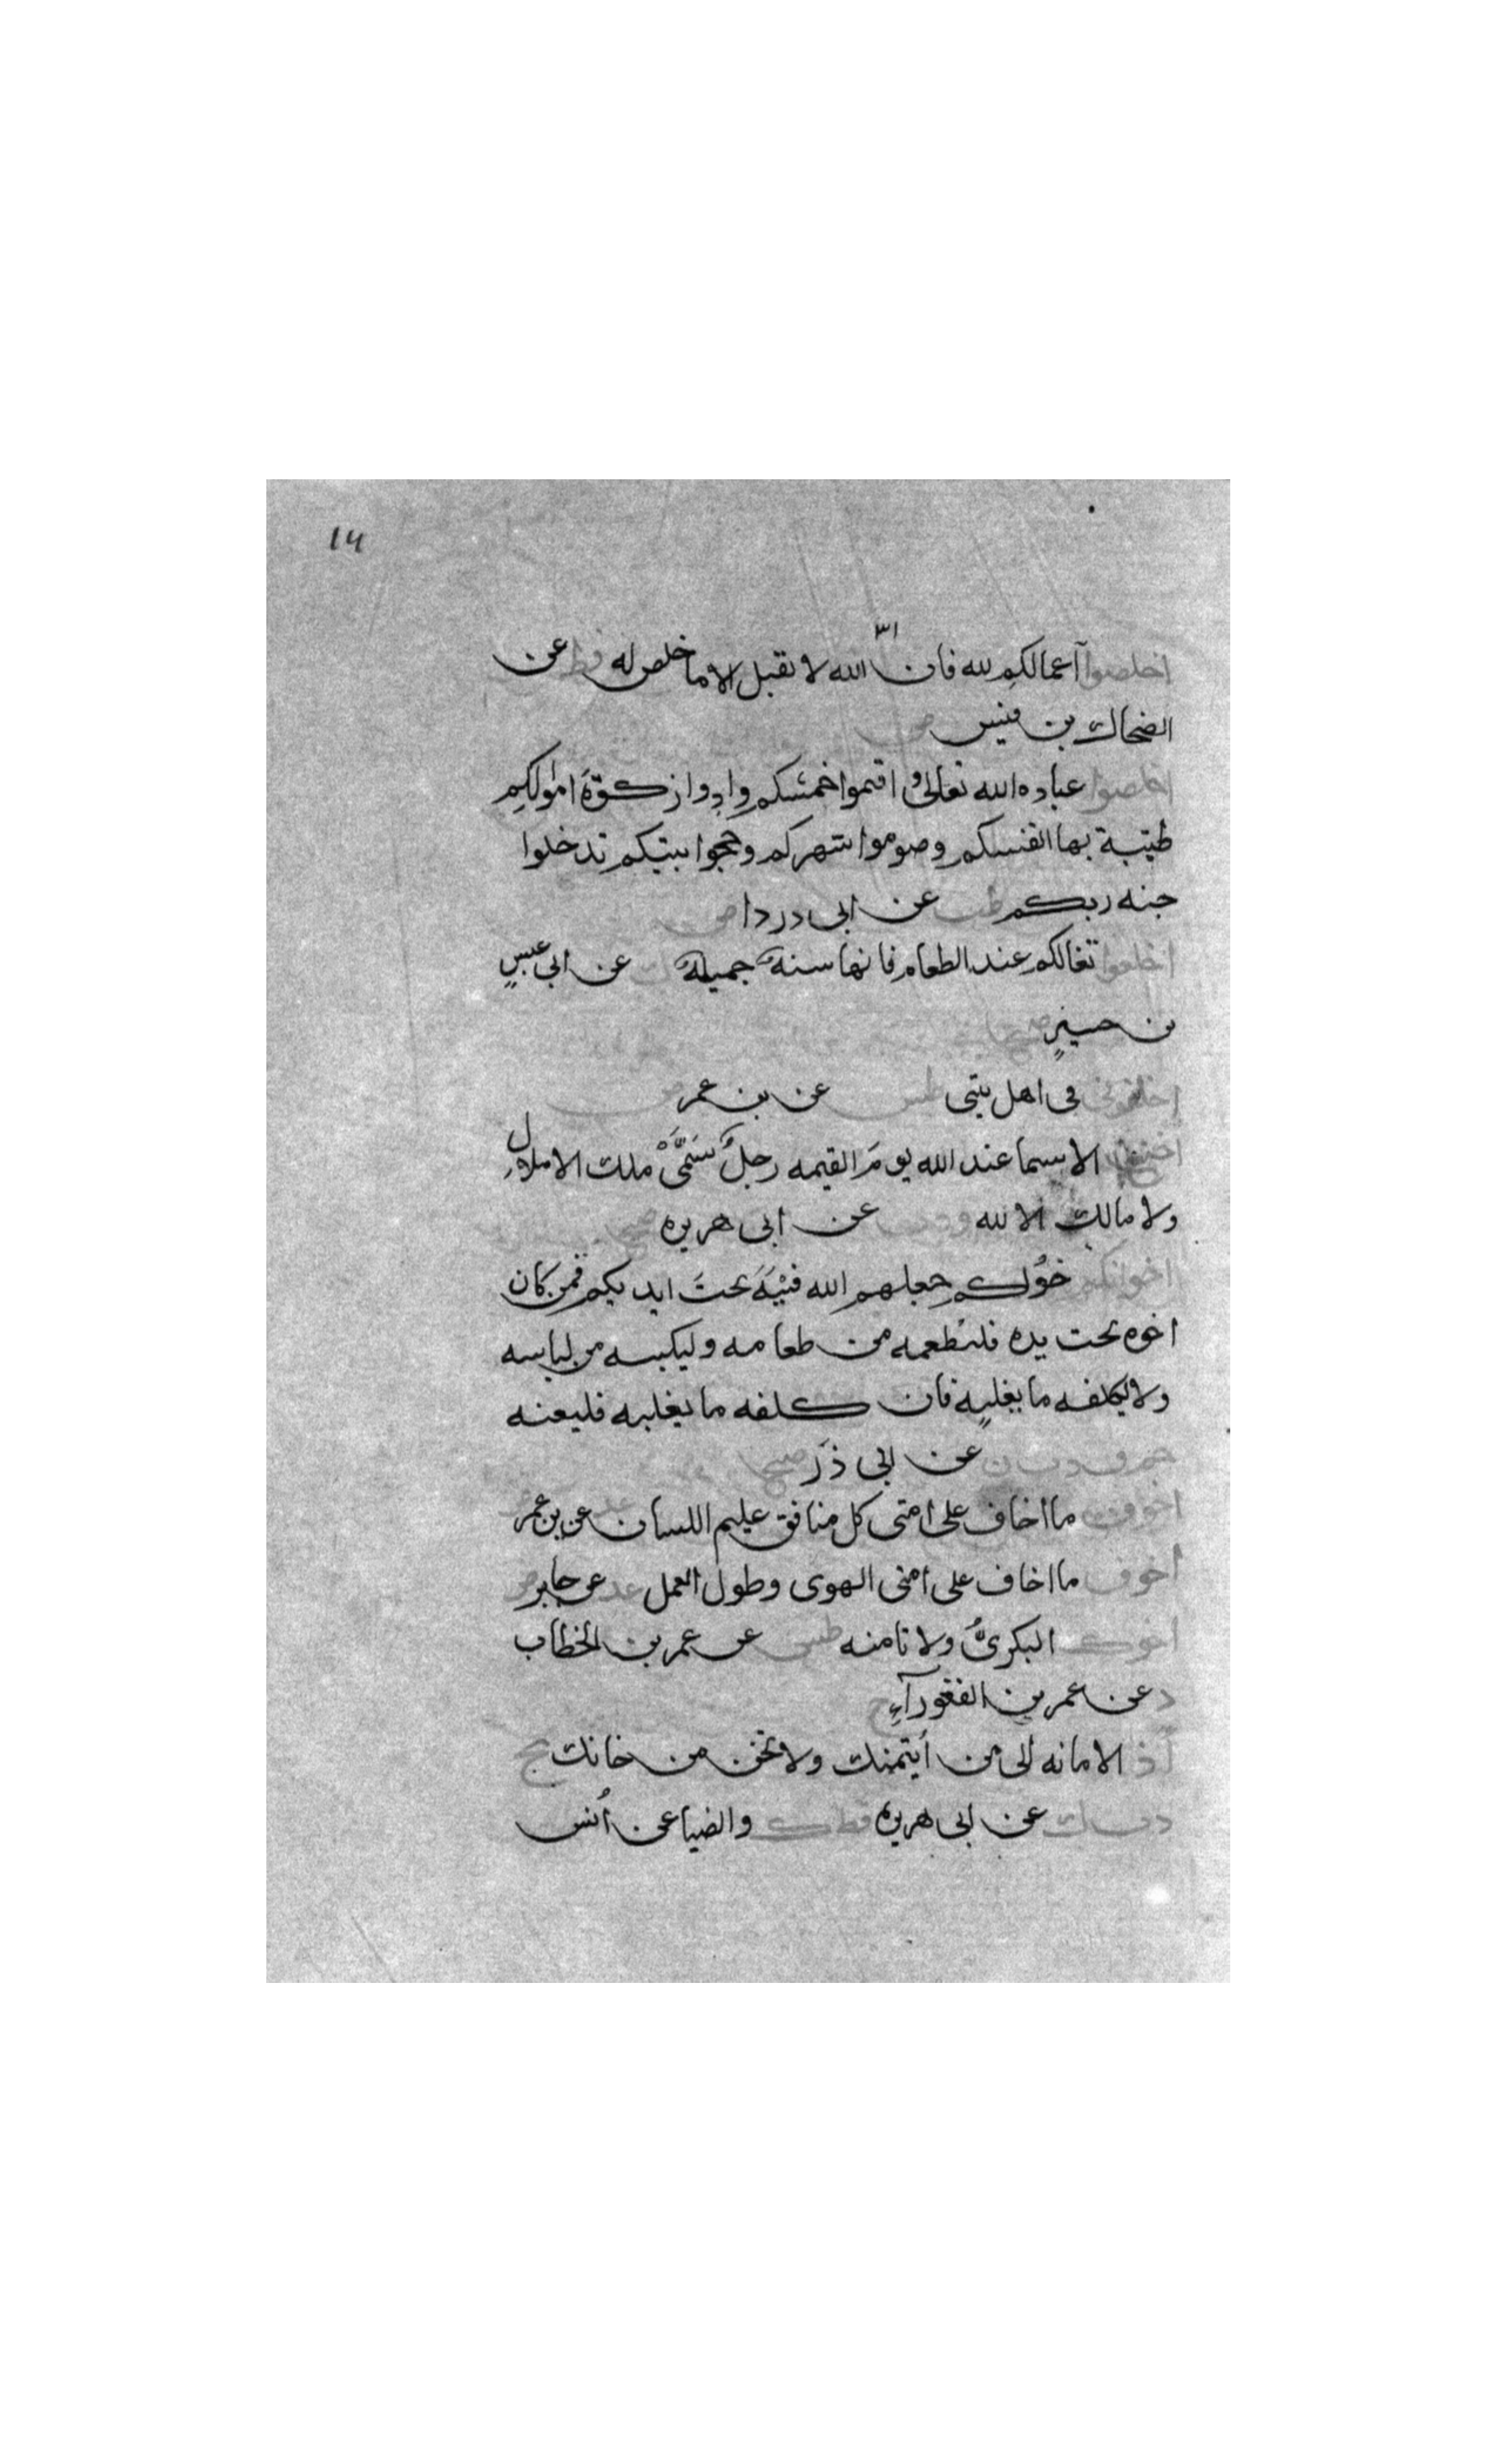 14
اخلصوا اعمالكم لله فان الله لا يقبل الا ما خلص له قط عن
الضحاك بن قيس ض
اخلصوا عباده الله تعالى واقيموا خمسكم وادوا زكوة اموالكم
طيبة بها انفسكم وصوموا شهركم وحجوا بيتكم تدخلوا
جنه ربكم طب عن ابى دردا ض
اخلعوا نعالكم عند الطعام فانها سنة جميلة ك عن ابى عبس
بن
اخلفونى فى اهل بيتى طس عن بن عمر ض
الاسما عند الله يوم القيمه رجل تسمى ملك الاملاك
ولا مالك الا لله عن ابى هريره صحيح
اخوانكم خولكم جعلهم الله فتية تحت ايديكم فمن كان
اخوه تحت يده فليطعمه من طعامه وليكسه من لباسه
ولا يكلفه ما يغلبه فان كلفه ما يغلبه فليعنه
حم ق د ت ن عن ابى ذر صحيح
اخوف ما اخاف على امتى كل منافق عليم اللسان عد عن بن عمر
اخوف ما اخاف على امتى الهوى وطول العمل عد عن جابر
اخوك البكرى ولا تامنه طس عن عمر بن الخطاب
د عن عمر بن الفغورآء ح
اد الامانه الى من ايتمنك ولا تخن من خانك تخ
د ت ك عن ابى هريره قط ك والضيا عن أنس